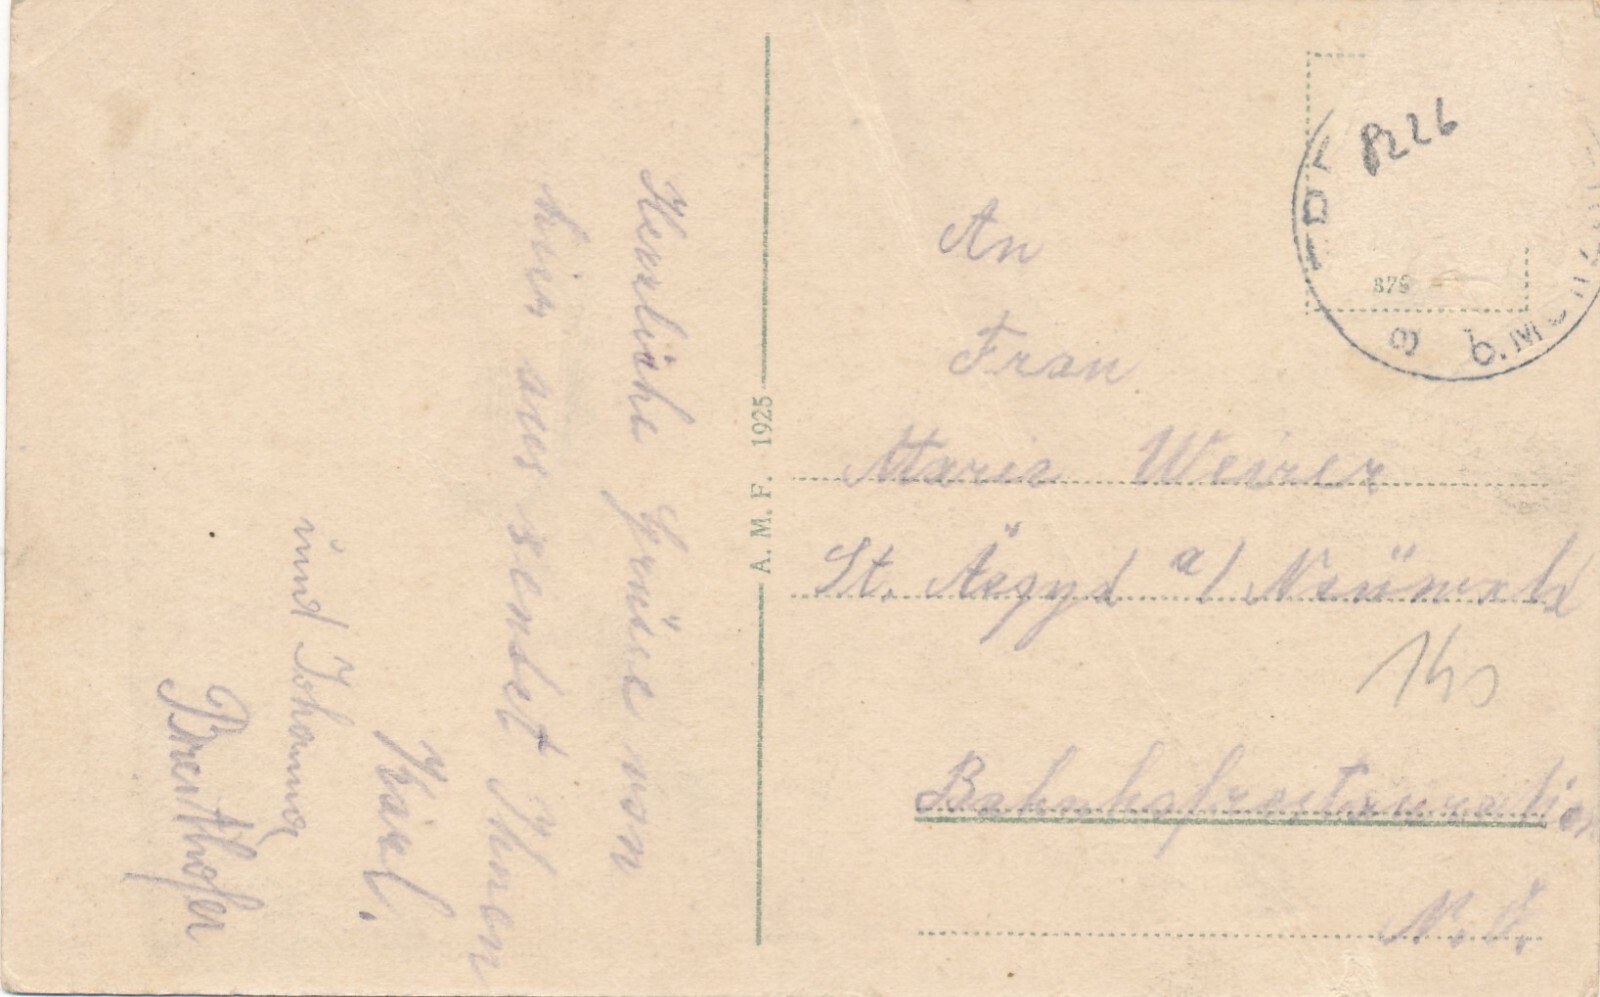 Herzliche Grüsse von
hier aus sendet Ihnen
Karl.
und Johanna
Breithofer
A. M. F. 1925
An
Frau
Maria Weirer
St. Äegyd a/ Neüwald
Bahnhofrestauration
N. Ö.
140
P226
379